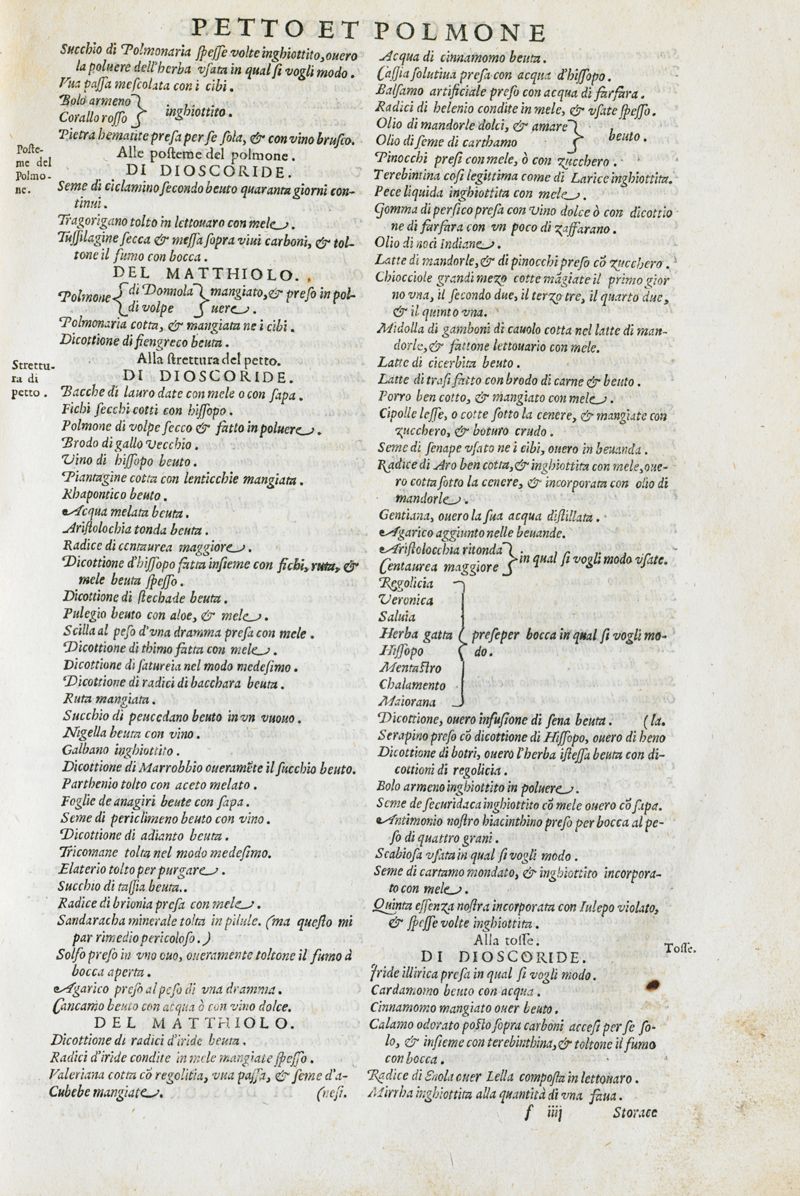 PETTO ET POLMONE
Succhio di Polmonaria ſpeſſe volte inghiottito, ouero
la poluere dell'herba vſata in qual ſi vogli modo.
Vua paſſa meſcolata con i cibi.
Bolo armeno
Corallo roſſo } inghiottito.
Pietra hematite preſa per ſe ſola, & con vino bruſco.
Poſte-
me del
Polmo-
ne.
Alle poſteme del polmone.
DI DIOSCORIDE.
Seme di ciclamino ſecondo beuto quaranta giorni con-
tinui.
Tragorigano tolto in lettouaro con mele.
Tuſſilagine ſecca & meſſa ſopra viui carboni, & tol-
tone il fumo con bocca.
DEL MATTHIOLO.
Polmone { di Donnola } mangiato, & preſo in pol-
{ di volpe } uere.
Polmonaria cotta, & mangiata ne i cibi.
Dicottione di fiengreco beuta.
Strettu-
ra di
petto.
Alla ſtrettura del petto.
DI DIOSCORIDE.
Bacche di lauro date con mele o con ſapa.
Fichi ſecchi cotti con hiſſopo.
Polmone di volpe ſecco & fatto in poluere.
Brodo di gallo vecchio.
Vino di hiſſopo beuto.
Piantagine cotta con lenticchie mangiata.
Rhapontico beuto.
Acqua melata beuta.
Ariſtolochia tonda beuta.
Radice di centaurea maggiore.
Dicottione d'hiſſopo fatta inſieme con fichi, ruta, &
mele beuta ſpeſſo.
Dicottione di ſtechade beuta.
Pulegio beuto con aloe, & mele.
Scilla al peſo d'vna dramma preſa con mele.
Dicottione di thimo fatta con mele.
Dicottione di ſatureia nel modo medeſimo.
Dicottione di radici di bacchara beuta.
Ruta mangiata.
Succhio di peucedano beuto in vn vuouo.
Nigella beuta con vino.
Galbano inghiottito.
Dicottione di Marrobbio oueramẽte il ſucchio beuto.
Parthenio tolto con aceto melato.
Foglie de anagiri beute con ſapa.
Seme di periclimeno beuto con vino.
Dicottione di adianto beuta.
Tricomane tolta nel modo medeſimo.
Elaterio tolto per purgare.
Succhio di taſſia beuta..
Radice di brionia preſa con mele.
Sandaracha minerale tolta in pilule. (ma queſto mi
par rimedio pericoloſo.)
Solfo preſo in vno ouo, oueramente toltone il fumo à
bocca aperta.
Agarico preſo al peſo di vna dramma.
Cancamo beuto con acqua ò con vino dolce.
DEL MATTHIOLO.
Dicottione di radici d'iride beuta.
Radici d'iride condite in mele mangiate ſpeſſo.
Valeriana cotta cõ regolitia, vua paſſa, & ſeme d'a-
Cubebe mangiate. (neſi.
Acqua di cinnamomo beuta.
Caſſia ſolutiua preſa con acqua d'hiſſopo.
Balſamo artificiale preſo con acqua di farfara.
Radici di helenio condite in mele, & vſate ſpeſſo.
Olio di mandorle dolci, & amare
Olio di ſeme di carthamo } beuto.
Pinocchi preſi con mele, ò con zucchero.
Terebintina coſi legittima come di Larice inghiottita.
Pece liquida inghiottita con mele.
Gomma di perſico preſa con vino dolce ò con dicottio
ne di farfara con vn poco di zaffarano.
Olio di noci indiane.
Latte di mandorle, & di pinocchi preſo cõ zucchero.
Chiocciole grandi mezo cotte mãgiate il primo gior
no vna, il ſecondo due, il terzo tre, il quarto due,
& il quinto vna.
Midolla di gamboni di cauolo cotta nel latte di man-
dorle, & fattone lettouario con mele.
Latte di cicerbita beuto.
Latte di traſi fatto con brodo di carne & beuto.
Porro ben cotto, & mangiato con mele.
Cipolle leſſe, o cotte ſotto la cenere, & mangiate con
zucchero, & boturo crudo.
Seme di ſenape vſato ne i cibi, ouero in beuanda.
Radice di Aro ben cotta, & inghiottita con mele, oue-
ro cotta ſotto la cenere, & incorporata con olio di
mandorle.
Gentiana, ouero la ſua acqua diſtillata.
Agarico aggiunto nelle beuande.
Ariſtolocchia ritonda
Centaurea maggiore } in qual ſi vogli modo vſate.
Regolicia
Veronica
Saluia
Herba gatta } preſe per bocca in qual ſi vogli mo-
Hiſſopo do.
Mentaſtro
Chalamento
Maiorana
Dicottione, ouero infuſione di ſena beuta. (la.
Serapino preſo cõ dicottione di Hiſſopo, ouero di heno
Dicottione di botri, ouero l'herba iſteſſa beuta con di-
cottioni di regolicia.
Bolo armeno inghiottito in poluere.
Seme de ſecuridaca inghiottito cõ mele ouero cõ ſapa.
Antimonio noſtro hiacinthino preſo per bocca al pe-
ſo di quattro grani.
Scabioſa vſata in qual ſi vogli modo.
Seme di cartamo mondato, & inghiottito incorpora-
to con mele.
Quinta eſſenza noſtra incorporata con Iulepo violato,
& ſpeſſe volte inghiottita.
Toſſe.
Alla toſſe.
DI DIOSCORIDE.
Iride illirica preſa in qual ſi vogli modo.
Cardamomo beuto con acqua.
Cinnamomo mangiato ouer beuto.
Calamo odorato poſto ſopra carboni acceſi per ſe ſo-
lo, & inſieme con terebinthina, & toltone il fumo
con bocca.
Radice di Enola ouer Lella compoſta in lettouaro.
Mirrha inghiottita alla quantità di vna faua.
f iiij Storace